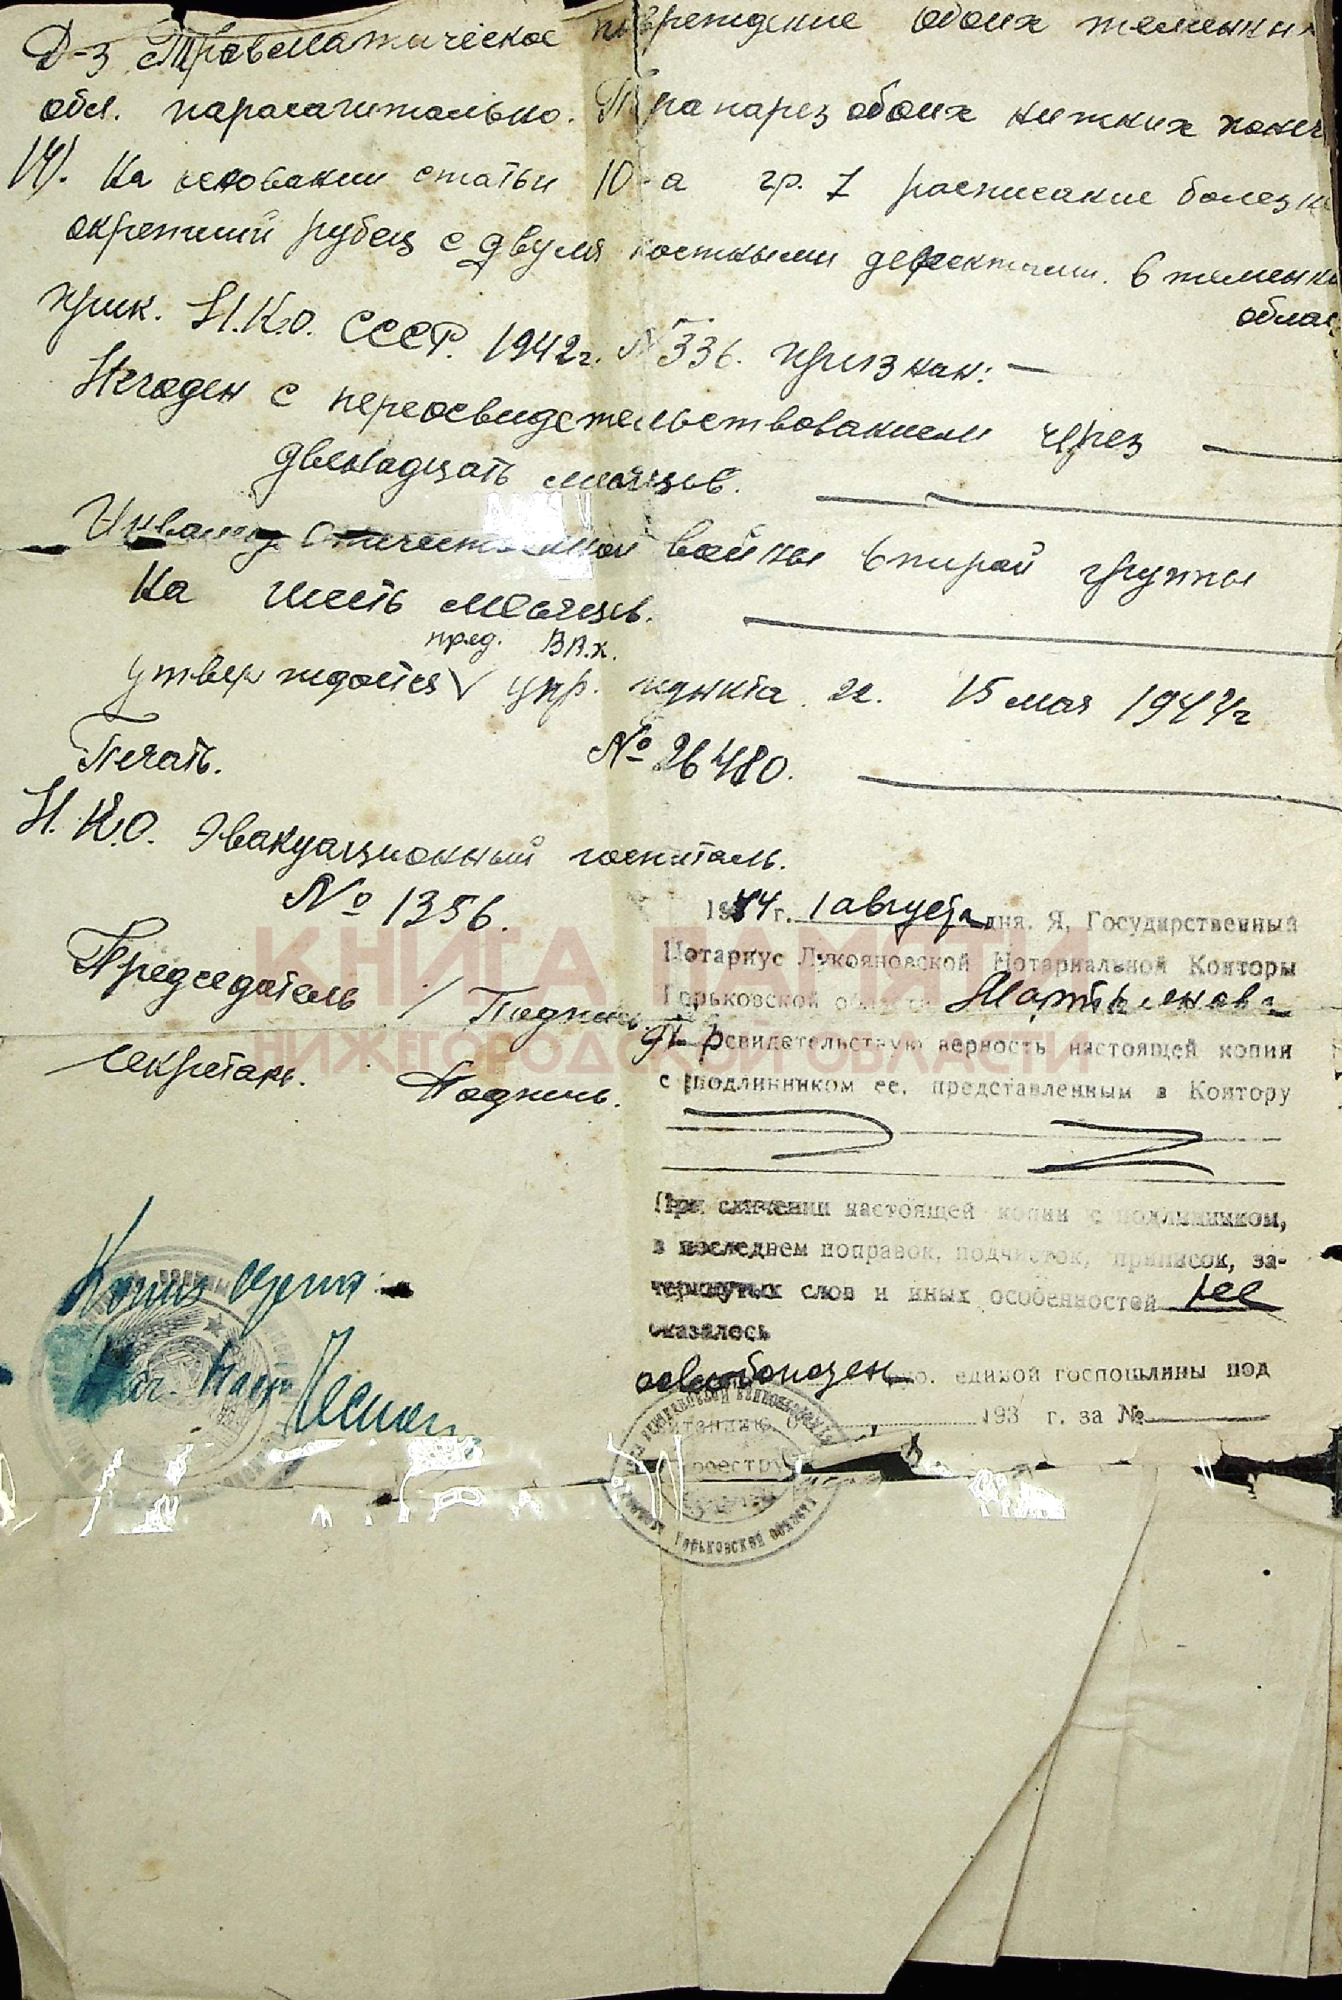 Д-з Травматическое повреждение обоих теменных
обл. парасагитально. Парапарез обоих нижних конеч
IV). На основании статьи 10-а гр. I расписание болезн
окрепший рубец с двумя костными дефектами в теменн
облас
прик. Н.К.О. СССР. 1942г. № 336. признан: —
Негоден с переосвидетельствованием через
двенадцать месяцев.
Инвалид Отечественной войны второй группы
на шесть месяцев.
пред.
утверждается упр. пункта 15 мая 1944г
Печать. № 26480.
Н.К.О. Эвакуационный госпиталь.
№ 1356.
Председатель / Подпись
секретарь. Подпись.
1944 г. 1 августа дня. Я, Государственный
Нотариус Лукояновской Нотариальной Конторы
Горьковской области
свидетельствую верность настоящей копии
с подлинником ее, представленным в Контору
При сличении настоящей копии с подлинником,
в последнем поправок, подчисток, приписок, за-
черкнутых слов и иных особенностей не
оказалось
освобожден единой госпошлины под
квитанцию 193 г. за №
реестру
Горьковской области
Копия верна:
КНИГА ПАМЯТИ
НИЖЕГОРОДСКОЙ ОБЛАСТИ